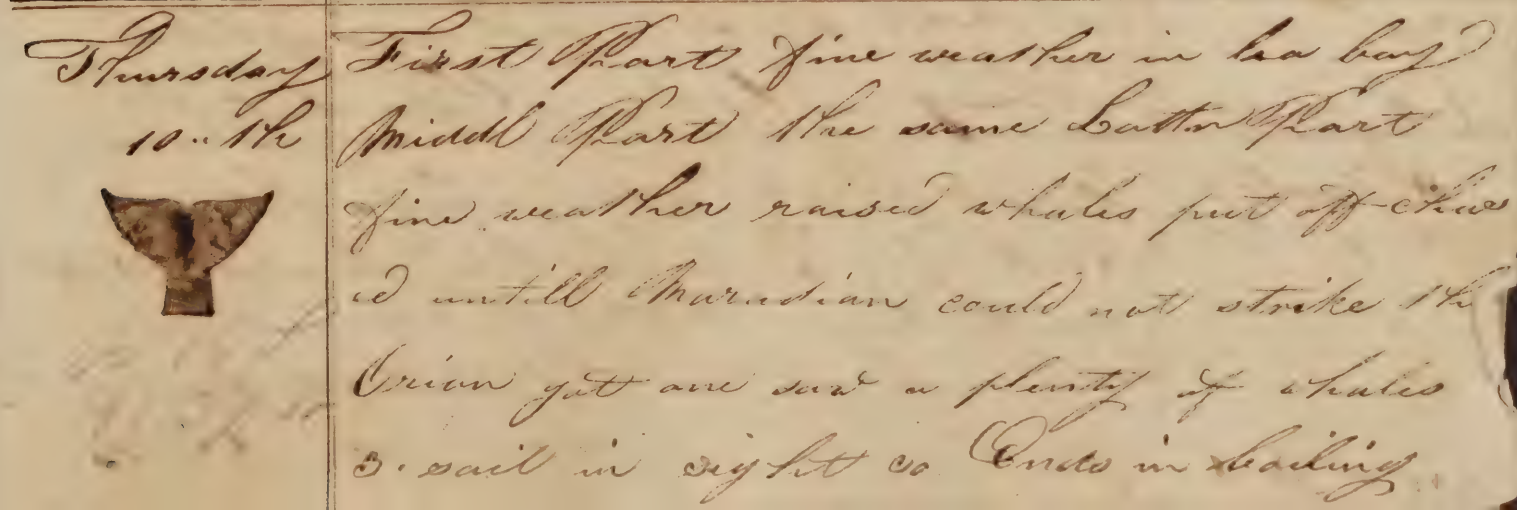 Thursday First Part fine weather in la bay
10..th Middl Part the same Lattr Part
fine weather raised whales put off chas
ed untill Maradian could not strike th
Orian gott one saw a plenty of whales
3. sail in sight so Ends in boiling